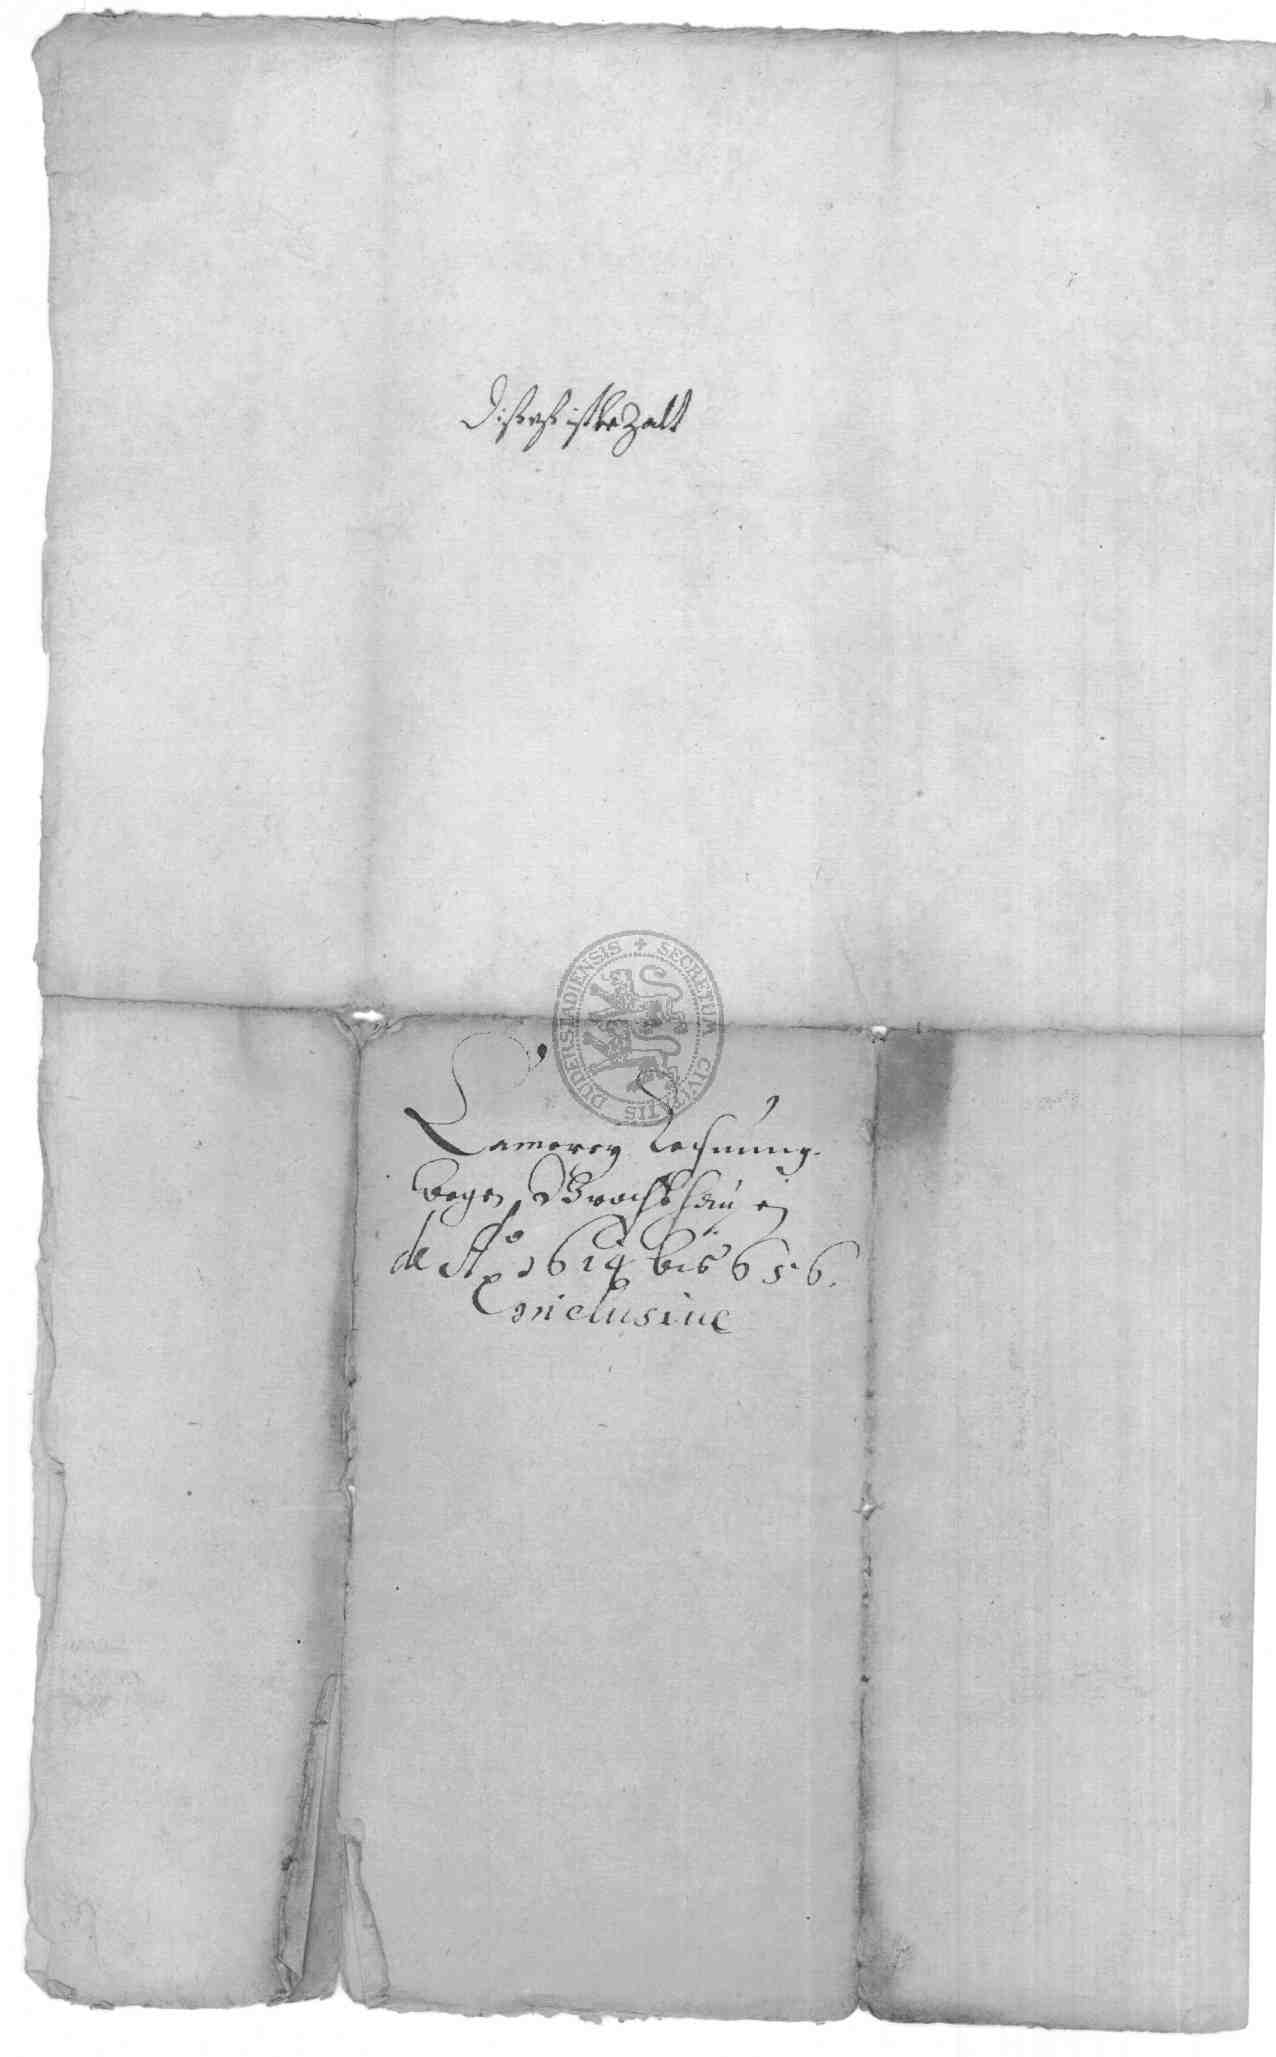 Dißes ist bezalt
SECRETUM CIVITATIS DUDERSTADIENSIS
Camerey Rechnung
wegen
de Ao 1614 bis 656.
Conclusiue